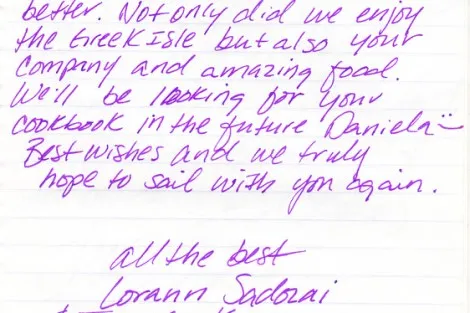 better. Not only did we enjoy
the Greek Isle but also your
company and amazing food.
We'll be looking for your
cookbook in the future Daniela
Best wishes and we truly
hope to sail with you again.
all the best
Lorann Sadozai